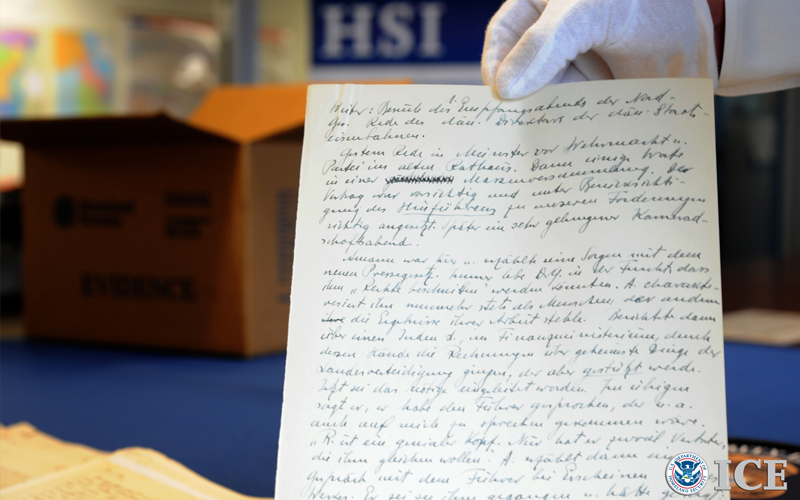 HSI
Weiter: Besuch des Empfangsabends der Nord-
Ges. Rede des dän. Direktors der dän. Staats-
eisenbahnen.
Gestern Rede in Münster vor Wehrmacht u.
Partei im alten Rathaus. Dann einige Worte
in einer Massenversammlung. Der
Vortrag war vorsichtig und unter Berücksichti-
gung des Hinführens zu unseren Forderungen
richtig angesetzt. Später ein sehr gelungener Kamerad-
schaftsabend.
Amann war hier u. erzählte seine Sorgen mit dem
neuen Pressegesetz. Immer lebe in der Furcht, dass
ihm "Rechte beschnitten" werden könnten. A. charakte-
risiert ihn nunmehr stets als Menschen, der andern
die Ergebnisse ihrer Arbeit stehle. Berichtet dann
über einen Juden im Finanzministerium, durch
dessen Hände die Rechnungen über geheimste Dinge der
Landesverteidigung gingen, der aber gestützt werde.
Jetzt sei das nötige eingeleitet worden. Im übrigen
sagt er, er habe den Führer gesprochen, der u. a.
auch auf mich zu sprechen gekommen wäre.
"R. ist ein genialer Kopf. Nur hat er zuviel
die ihm gleichen wollen." A. erzählt dann
Gespräch mit dem Führer bei Erscheinen
EVIDENCE
U.S. DEPARTMENT OF HOMELAND SECURITY
ICE